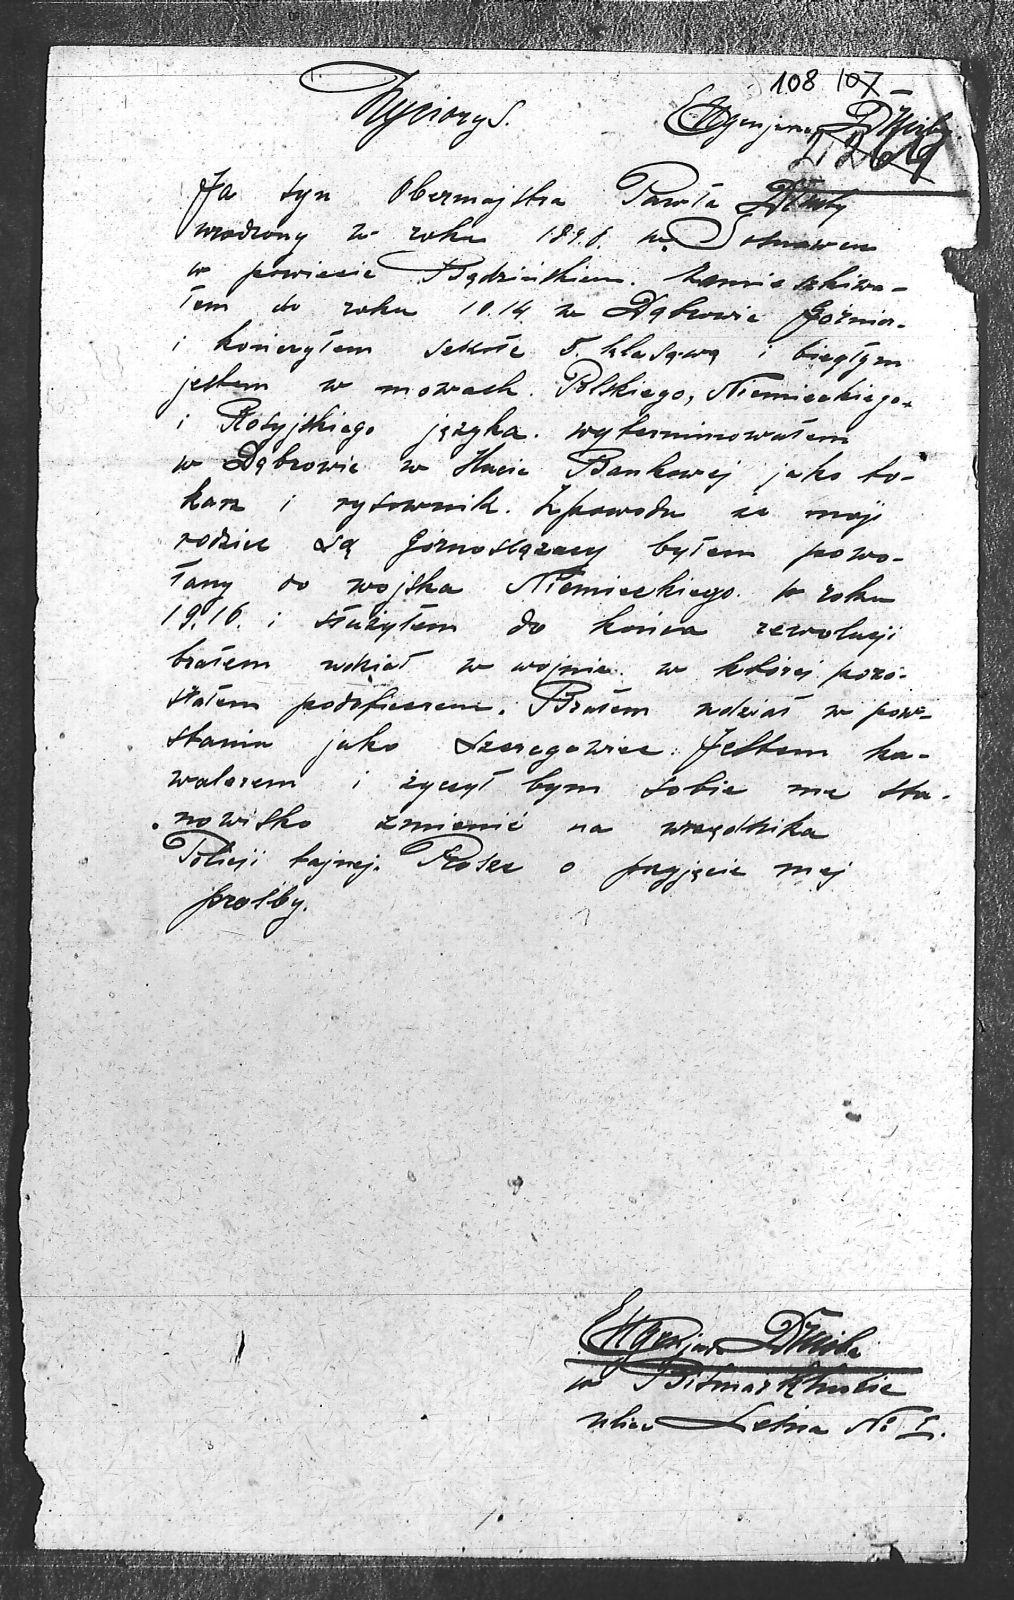 108 107
Życiorys.
Eugenjana Dziuby.
Ja syn Obermajstra Pawła Dziuby
urodzony w roku 189.6. w. Sosnowcu
w powiecie Będzińskiem. zamieszkiwa-
łem do roku 19.14. w Dąbrowie Górnicz.
i kończyłem szkołe 5. klasową i biegłym
jestem w mowach. Polskiego, Niemieckiego
i Rosyjskiego języka. wyterminowałem
w Dąbrowie w Hucie Bankowej jako to-
karz i rysownik. Zpowodu że moji
rodzice są górnoslązacy byłem powo-
łany do wojska Niemieckiego. w roku
19.16. i służyłem do końca rewolucji
brałem udział w wojnie. w której pozo-
stałem podoficerem. Brałem udział w pow-
staniu jako szeregowiec. Jestem ka-
walerem i życzył bym sobie me sta-
nowisko zmienić na urzędnika
Policji tajnej. Prosze o przyjęcie mej
prośby.
Eugenjan Dziuba
w Bismarkhucie
ulica Letnia No I.